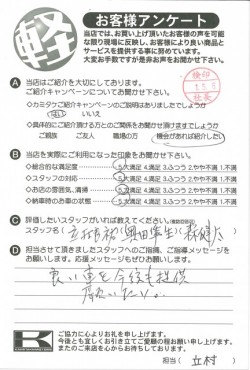 軽
お客様アンケート
当店では、お買い上げ頂いたお客様の声を可能
な限り現場に反映し、お客様により良い商品と
サービスを提供する事に努めています。
大変お手数ですが是非お声をお聞かせ下さい。
検印
社長
A 当店はご紹介を大切にしております。
ご紹介キャンペーンについてお聞かせ下さい。
◇カミタケご紹介キャンペーンのご説明はありましたでしょうか
はい いいえ
◇具体的にご紹介頂ける方とのご関係をお聞かせ頂けますでしょうか
ご親族 ご友人 職場の方 機会があれば紹介したい
B 当店を実際にご利用になった印象をお聞かせ下さい。
◇総合的な満足度 5.大満足 4.満足 3.ふつう 2.やや不満 1.不満
◇スタッフの対応 5.大満足 4.満足 3.ふつう 2.やや不満 1.不満
◇お店の雰囲気、清掃 5.大満足 4.満足 3.ふつう 2.やや不満 1.不満
◇納車時のお車の状態 5.大満足 4.満足 3.ふつう 2.やや不満 1.不満
C 評価したいスタッフがいれば教えてください。(複数回答可)
スタッフ名
D 担当させて頂きましたスタッフへのご指摘、ご指導メッセージを
お願いします。応援メッセージもぜひお願いします。
良い車を今後も提供
願いたい。
ご協力に心よりお礼を申し上げます。
今後とも宜しくお引き立てご愛顧の程お願い申し上げます。
またのご来店を心からお待ちしております。
担当( 立村 )